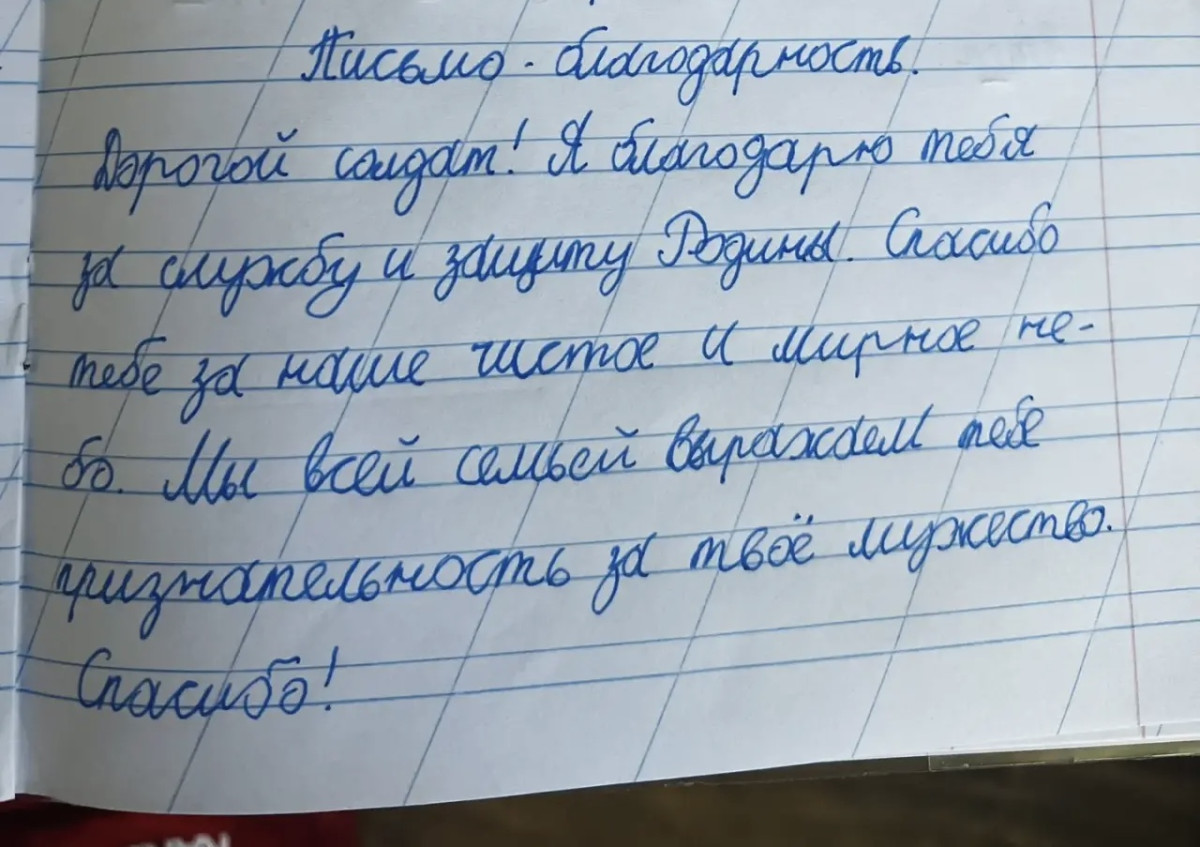 Письмо - благодарность.
Дорогой солдат! Я благодарю тебя
за службу и защиту Родины. Спасибо
тебе за наше чистое и мирное не-
бо. Мы всей семьёй выражаем тебе
признательность за твоё мужество.
Спасибо!